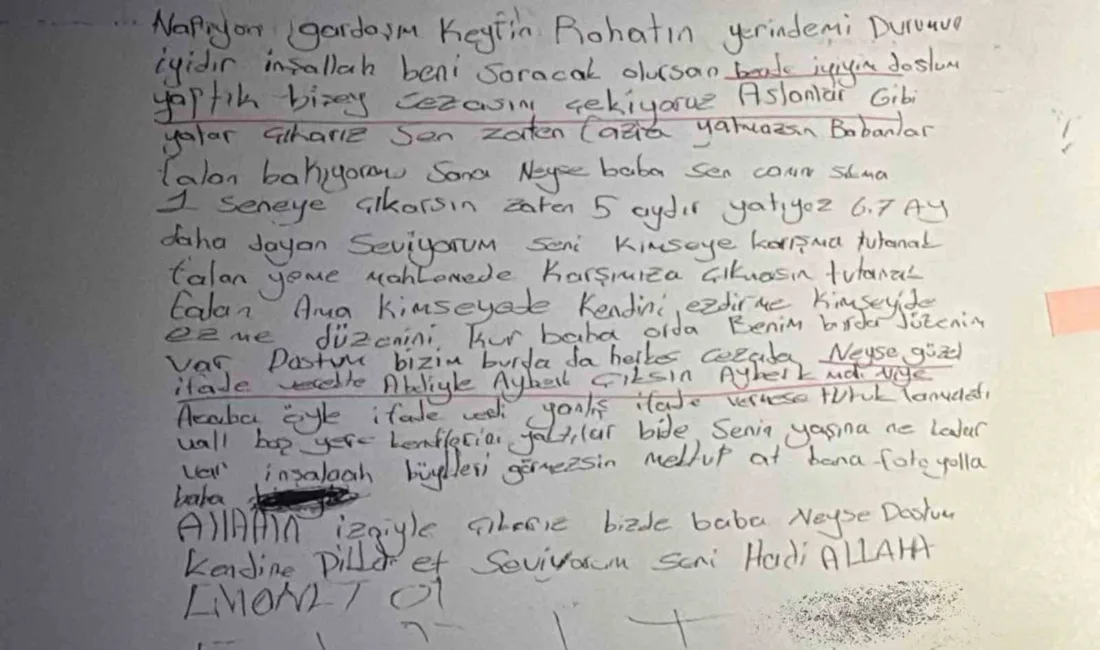 Napıyon gardaşım Keyfin Rohatın yerindemi Durumun
iyidir inşallah beni soracak olursan bende iyiyim dostum
yaptık bizey cezasını çekiyoruz Aslanlar Gibi
yatar çıkarız Sen zaten fazla yatmazsın Babanlar
falan bakıyorum sana Neyse baba sen canını sıkma
1 seneye çıkarsın zaten 5 aydır yatıyoz 6.7 AY
daha dayan Seviyorum seni Kimseye karışma tutanak
falan yeme mahkemede Karşımıza çıkmasın tutanak
falan Ama Kimseyede Kendini ezdirme Kimseyide
ezme düzenini kur baba orda Benim burda düzenim
var Dostum bizim burda da herkes cezada Neyse güzel
ifade verdik Abiyle Ayberk Çıksın Ayberk niye
Acaba öyle ifade verdi yanlış ifade vermese tutuklanmazdı
vall boş yere yaktılar bide Senin yaşına ne kadar
var inşalaah büyükleri görmezsin mektup at bana foto yolla
baba
AllAHın izniyle çıkarız bizde baba Neyse Dostum
Kendine Dikkat et Seviyorum seni Hadi ALLAHA
EMANET Ol